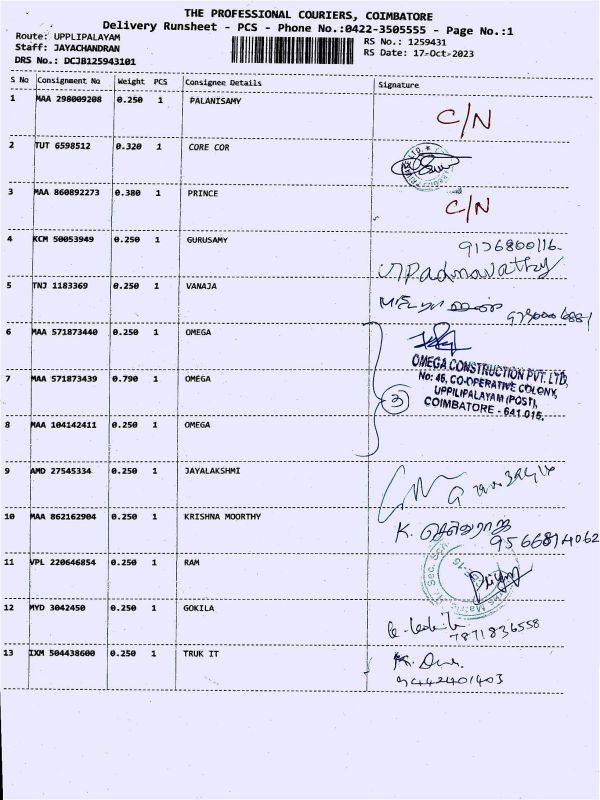 THE PROFESSIONAL COURIERS, COIMBATORE
Delivery Runsheet - PCS - Phone No.:0422-3505555 - Page No.:1
Route: UPPLIPALAYAM
Staff: JAYACHANDRAN
DRS No.: DCJB125943101
RS No.: 1259431
RS Date: 17-Oct-2023
S No Consignment No Weight PCS Consignee Details Signature
1 MAA 298009208 0.250 1 PALANISAMY C/N
2 TUT 6598512 0.320 1 CORE COR
3 MAA 860892273 0.380 1 PRINCE C/N
4 KCM 50053949 0.250 1 GURUSAMY 9126800116
Padmavathy
5 TNJ 1183369 0.250 1 VANAJA
6 MAA 571873440 0.250 1 OMEGA
OMEGA CONSTRUCTION PVT. LTD,
7 MAA 571873439 0.790 1 OMEGA 3 No: 46, CO-OPERATIVE COLONY,
UPPILIPALAYAM (POST),
COIMBATORE - 641 015.
8 MAA 104142411 0.250 1 OMEGA
9 AMD 27545334 0.250 1 JAYALAKSHMI
10 MAA 862162904 0.250 1 KRISHNA MOORTHY K.
11 VPL 220646854 0.250 1 RAM
12 MYD 3042450 0.250 1 GOKILA
7871836558
13 IXM 504438600 0.250 1 TRUK IT
9442401403